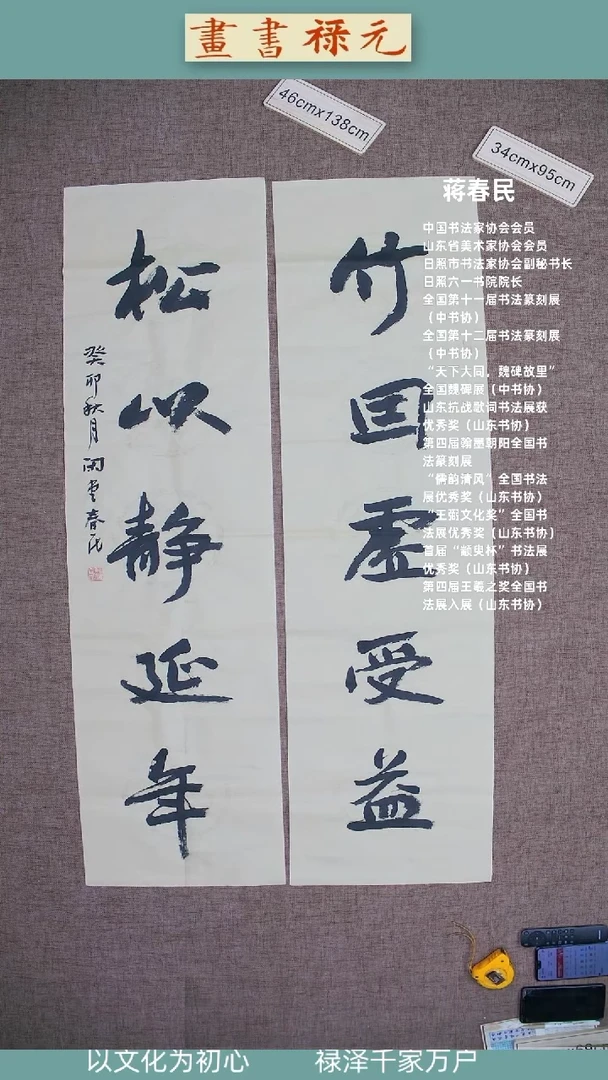 元禄書畫
46cmx138cm
34cmx95cm
蒋春民
中国书法家协会会员
山东省美术家协会会员
日照市书法家协会副秘书长
日照六一书院院长
全国第十一届书法篆刻展
（中书协）
全国第十二届书法篆刻展
（中书协）
“天下大同，魏碑故里”
全国魏碑展（中书协）
山东抗战歌词书法展获
优秀奖（山东书协）
第四届翰墨朝阳全国书
法篆刻展
“儒韵清风”全国书法
展优秀奖（山东书协）
“王弼文化奖”全国书
法展优秀奖（山东书协）
首届“颛臾杯”书法展
优秀奖（山东书协）
第四届王羲之奖全国书
法展入展（山东书协）
竹囙虚受益
松以静延年
癸卯秋月闲堂春民
以文化为初心 禄泽千家万户